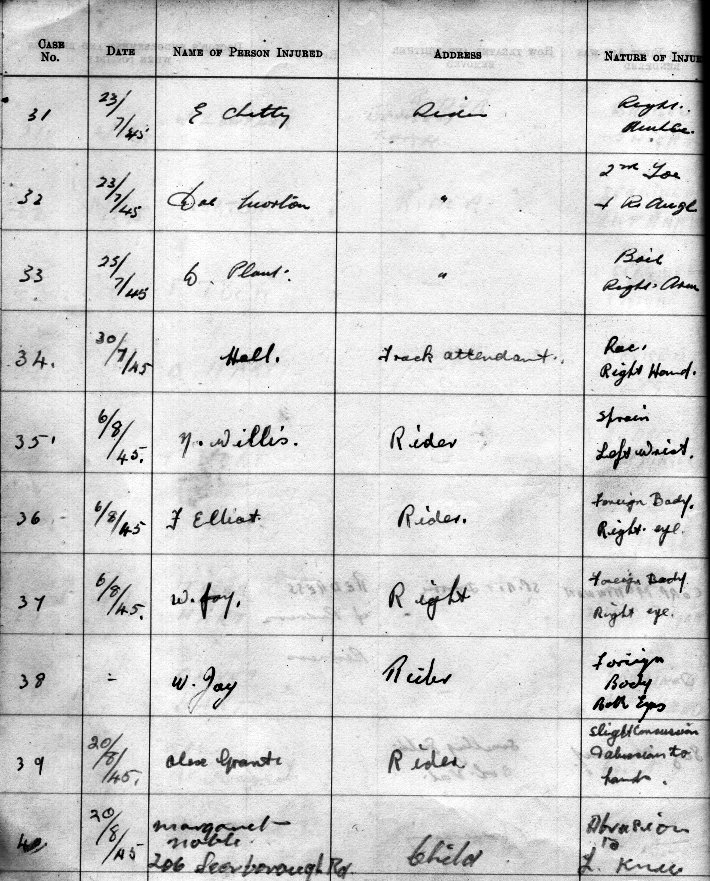 CASE No. DATE NAME OF PERSON INJURED ADDRESS NATURE OF INJU
31 23/7/45 E Chitty Rider Right
32 23/7/45 Morton " 2nd Toe
+ R.
33 25/7/45 Plant. " Boil
Right Arm
34. 30/7/45 Hall. Track attendant. Rac.
Right Hand.
35 6/8/45. N. Willis. Rider Sprain
Left Wrist.
36 6/8/45 F Elliot. Rider. Foreign Body.
Right eye.
37 6/8/45. W. Jay. Right Foreign Body
Right eye.
38 - W. Jay Rider Foreign
Body
Both Eyes
39 20/8/45. Alex Grant Rider Slight Concussion
+ abrasion to
hands.
40 20/8/45 Margaret
Noble
206 Scarborough Rd. Child Abrasion
to
L. Knee